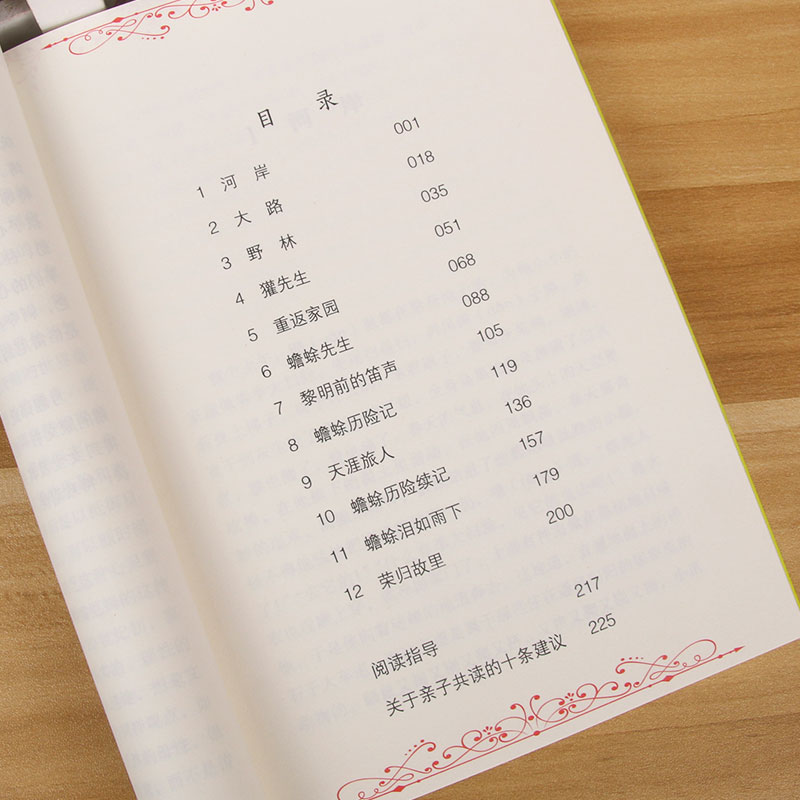 目 录
1 河 岸 001
2 大 路 018
3 野 林 035
4 獾先生 051
5 重返家园 068
6 蟾蜍先生 088
7 黎明前的笛声 105
8 蟾蜍历险记 119
9 天涯旅人 136
10 蟾蜍历险续记 157
11 蟾蜍泪如雨下 179
12 荣归故里 200
阅读指导 217
关于亲子共读的十条建议 225